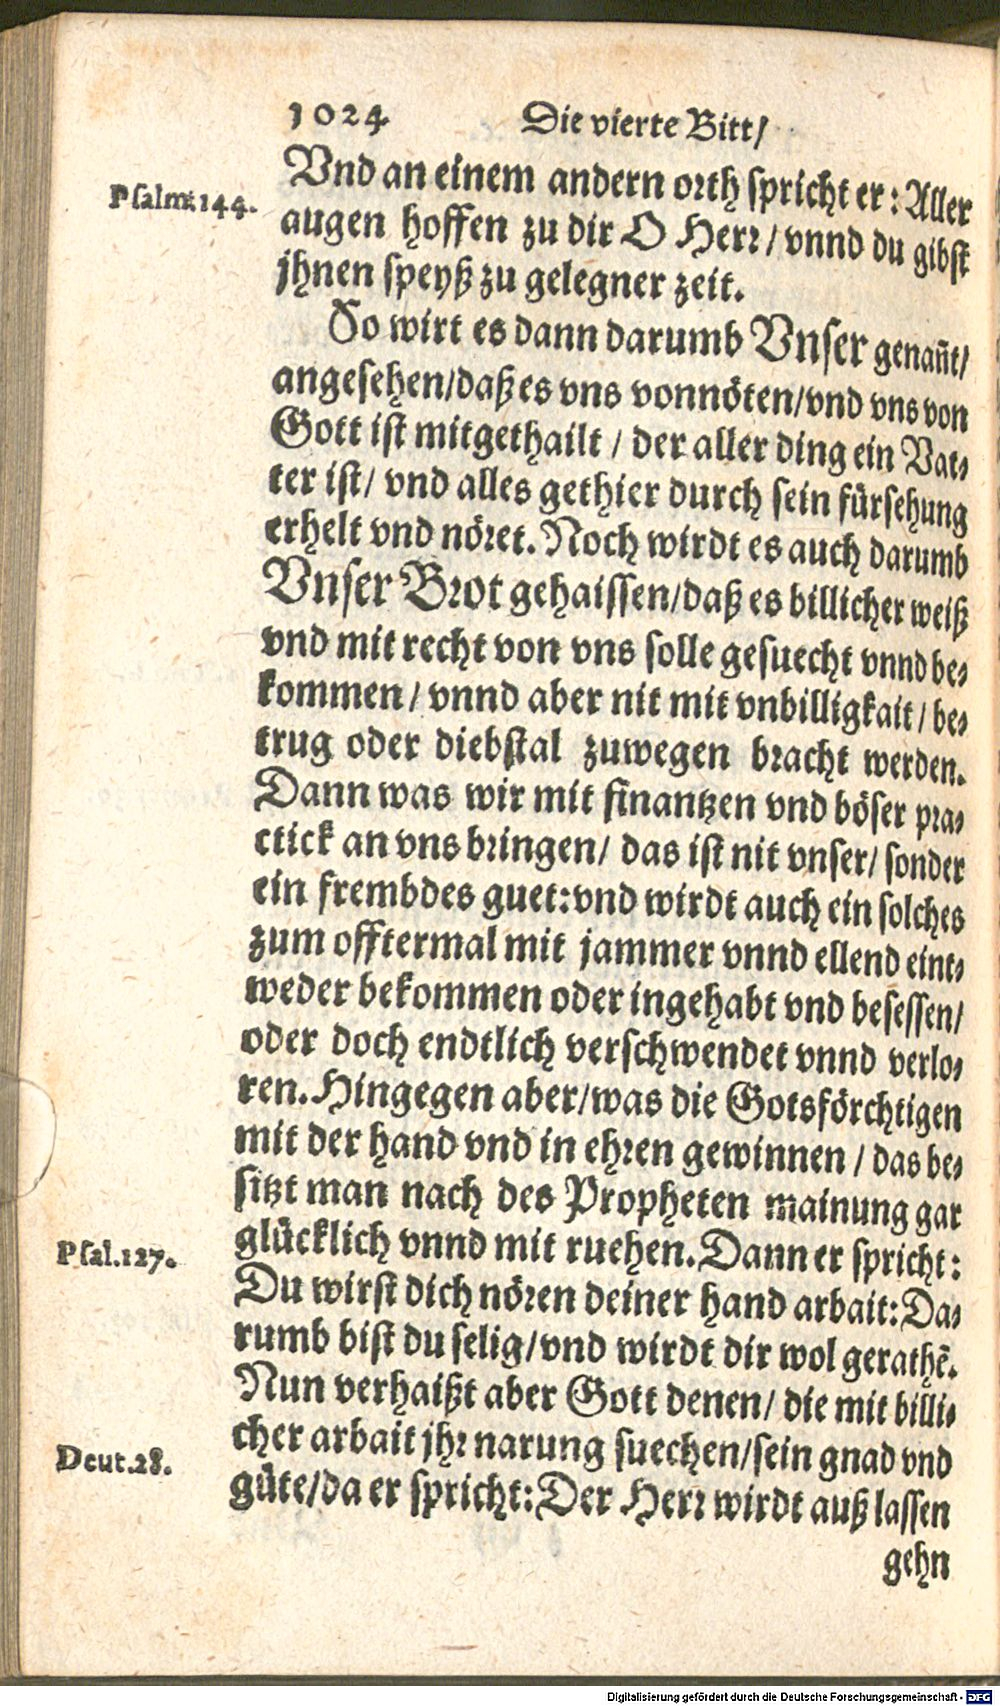 1024 Die vierte Bitt/
Vnd an einem andern orth spricht er: Aller
Psalm.144.
augen hoffen zu dir O Herr/ vnnd du gibst
jhnen speyß zu gelegner zeit.
So wirt es dann darumb Vnser genañt/
angesehen/daß es vns vonnöten/vnd vns von
Gott ist mitgethailt / der aller ding ein Vat-
ter ist/ vnd alles gethier durch sein fürsehung
erhelt vnd nöret. Noch wirdt es auch darumb
Vnser Brot gehaissen/daß es billicher weiß
vnd mit recht von vns solle gesuecht vnnd be-
kommen/ vnnd aber nit mit vnbilligkait/ be-
trug oder diebstal zuwegen bracht werden.
Dann was wir mit finantzen vnd böser pra-
ctick an vns bringen/ das ist nit vnser/ sonder
ein frembdes guet:vnd wirdt auch ein solches
zum offtermal mit jammer vnnd ellend eint-
weder bekommen oder ingehabt vnd besessen/
oder doch endtlich verschwendet vnnd verlo-
ren. Hingegen aber/was die Gotsförchtigen
mit der hand vnd in ehren gewinnen / das be-
sitzt man nach des Propheten mainung gar
glücklich vnnd mit ruehen. Dann er spricht:
Psal.127.
Du wirst dich nören deiner hand arbait: Da-
rumb bist du selig/vnd wirdt dir wol gerathē.
Nun verhaißt aber Gott denen/ die mit billi-
cher arbait jhr narung suechen/sein gnad vnd
Deut.28.
güte/da er spricht: Der Herr wirdt auß lassen
gehn
Digitalisierung gefördert durch die Deutsche Forschungsgemeinschaft - DFG